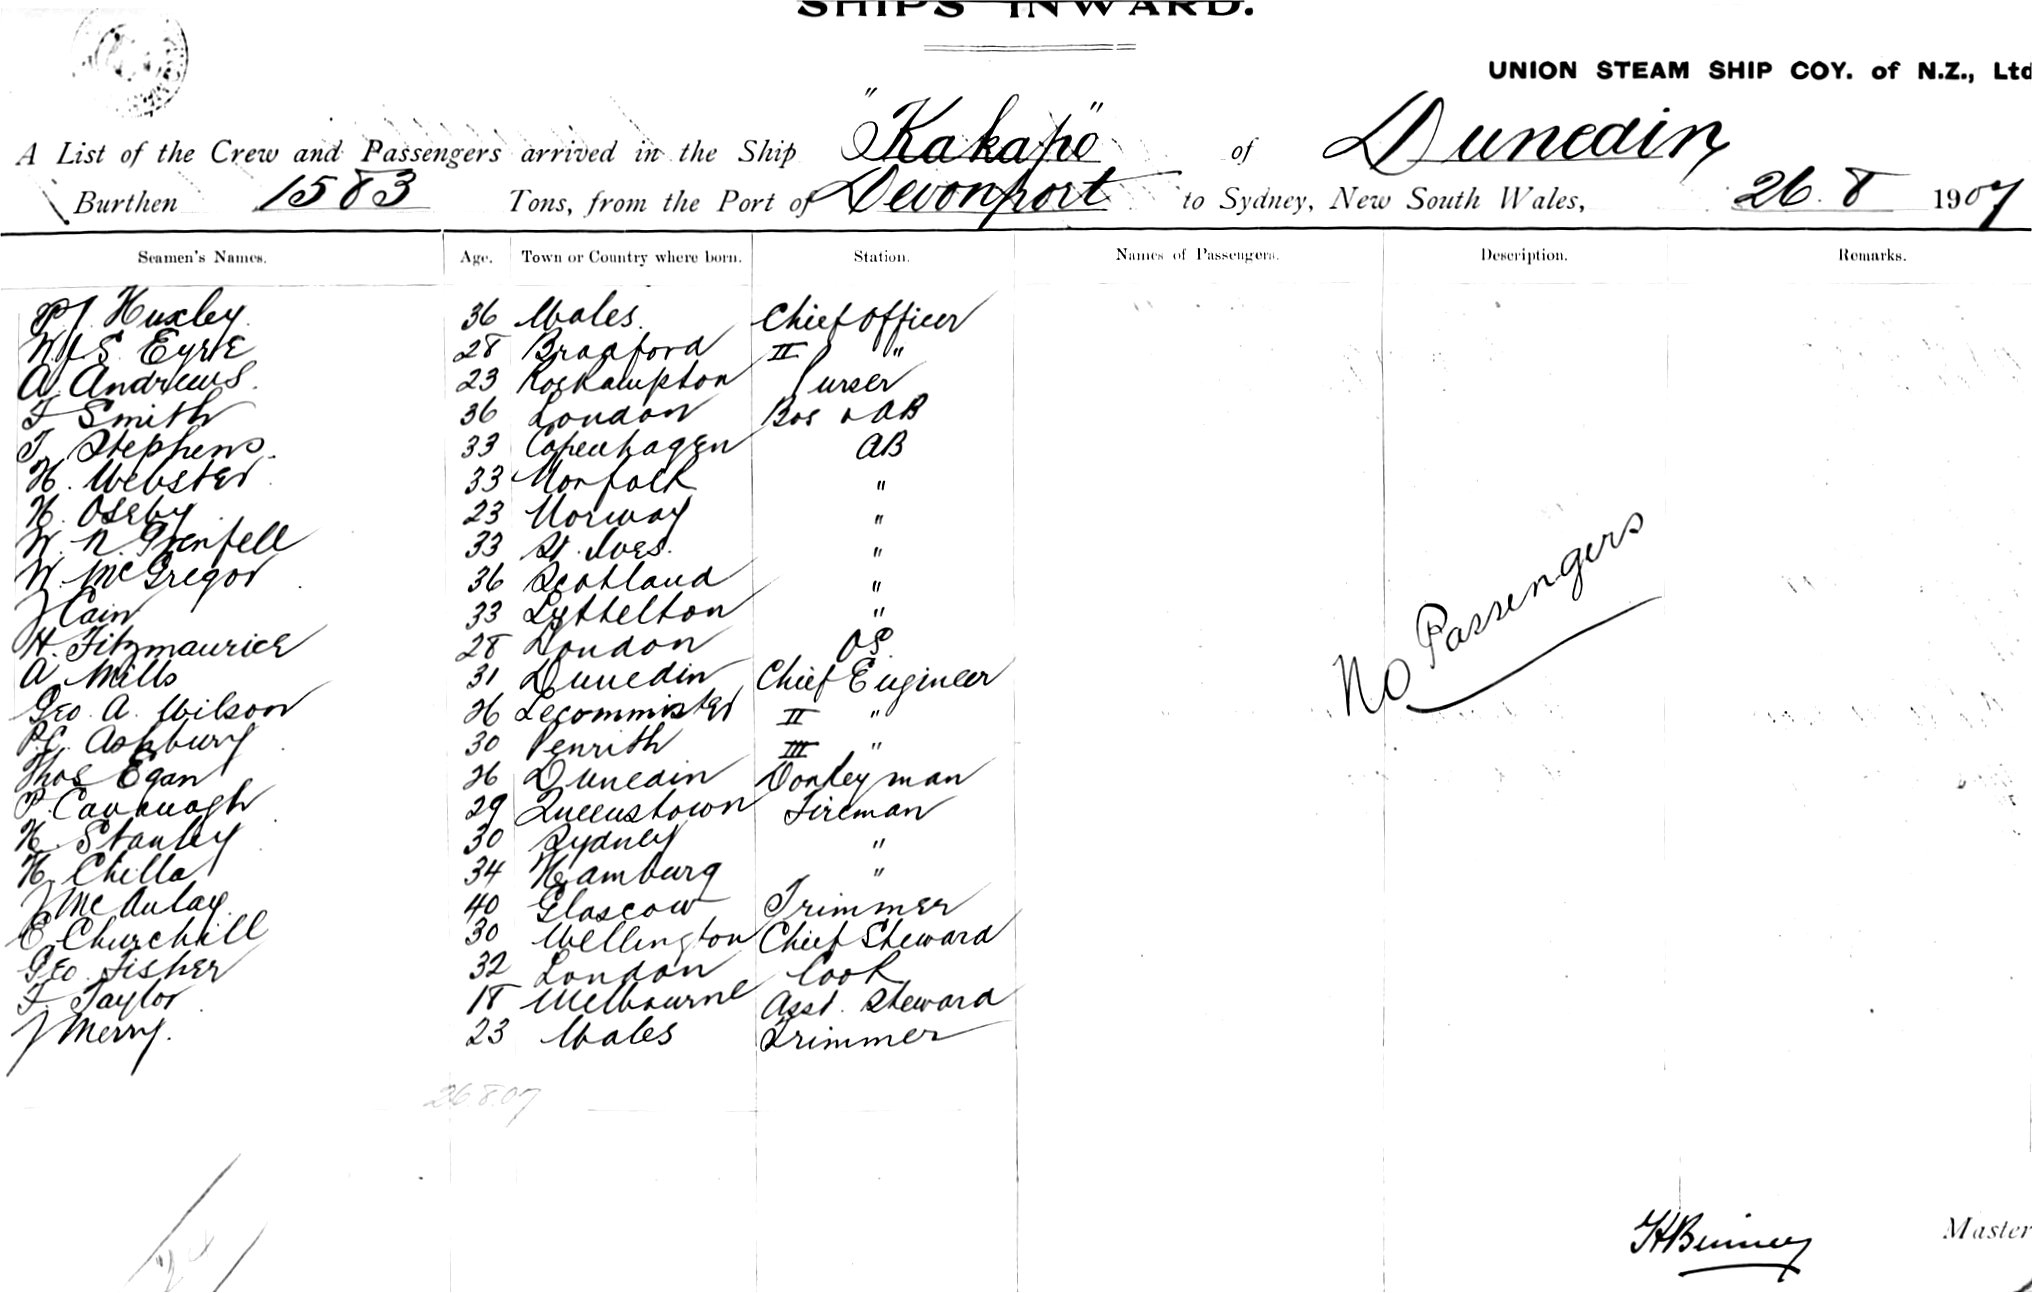 SHIPS INWARD.
UNION STEAM SHIP COY. of N.Z., Ltd
A List of the Crew and Passengers arrived in the Ship "Kakapo" of Dunedin
Burthen 1583 Tons, from the Port of Devonport to Sydney, New South Wales, 26. 8 1907
Seamen's Names. Age. Town or Country where born. Station. Names of Passengers. Description. Remarks.
P J Huxley 36 Wales Chief Officer
W J S Eyre 28 Bradford II "
A Andrews 23 Rockampton Purser
F Smith 36 London Bos & AB
T Stephens 33 Copenhagen AB
H. Webster 33 Norfolk "
H. Oseby 23 Norway "
W. N. Grenfell 33 St. Ives "
W. McGregor 36 Scotland "
J Cain 33 Lyttelton "
H. Fitzmaurice 28 London OS
A Mills 31 Dunedin Chief Engineer
Geo. A. Wilson 26 Leommister II "
P.C. Ashbury 30 Penrith III "
Thos Egan 26 Dunedin Donkeyman
P. Cavanagh 29 Queenstown Fireman
H. Stanley 30 Sydney "
H. Chilla 34 Hamburg "
J McAulay 40 Glascow Trimmer
E. Churchill 30 Wellington Chief Steward
Geo. Fisher 32 London Cook
F. Taylor 18 Melbourne Asst. Steward
J Merry. 23 Wales Trimmer
No Passengers
26.8.07
Binney Master